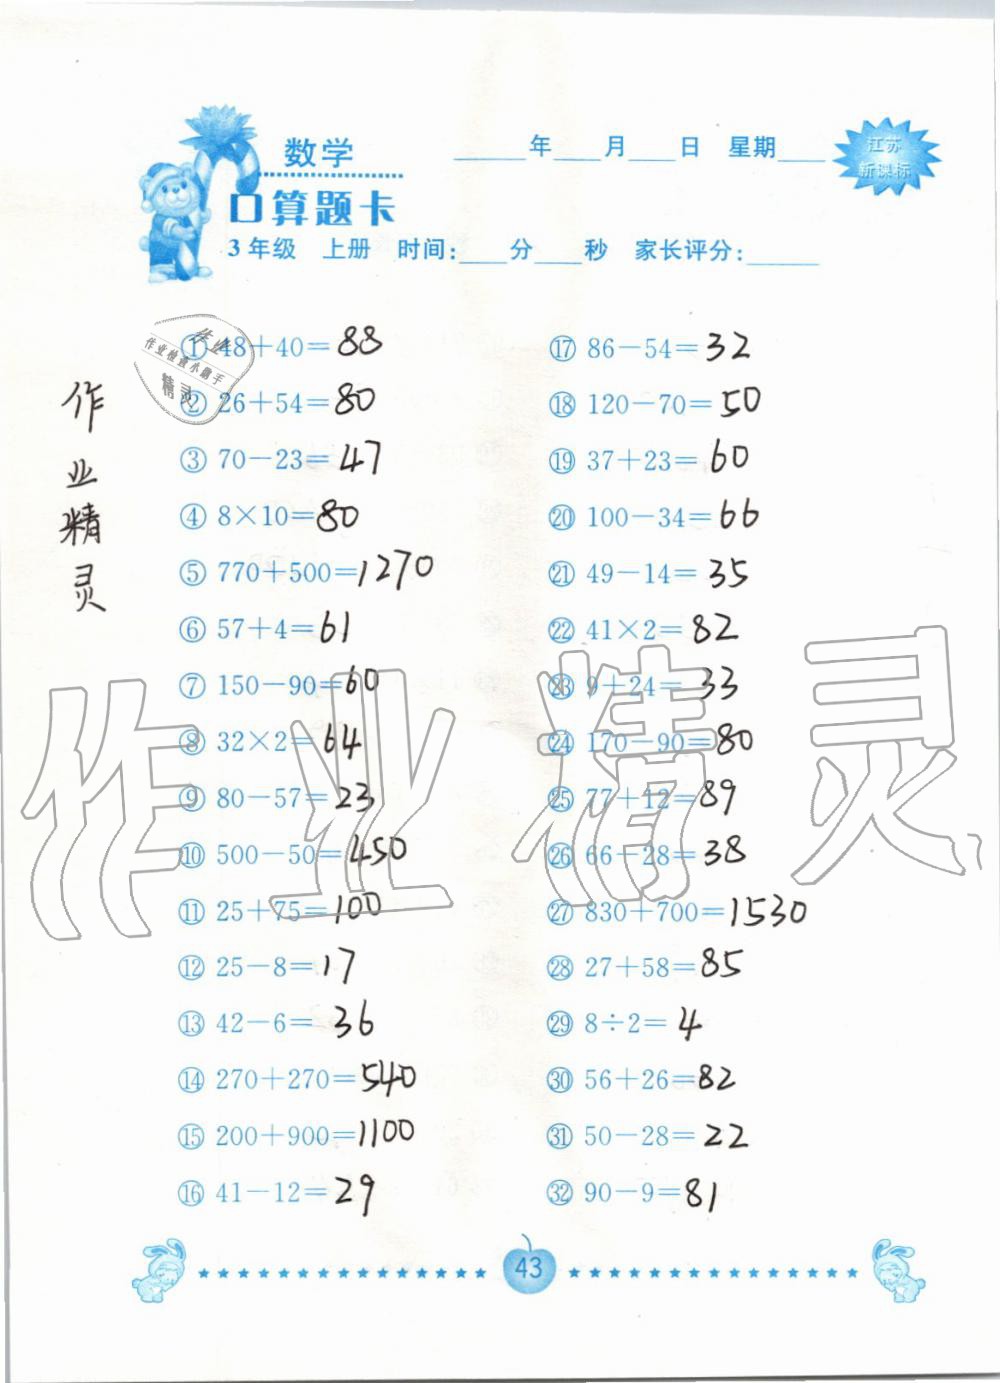 数学
____年____月____日 星期____
江苏
新课标
口算题卡
3年级 上册 时间:____分____秒 家长评分:____
作业
作业检查小助手
精灵
作业精灵
① 48+40=88
② 26+54=80
③ 70-23=47
④ 8×10=80
⑤ 770+500=1270
⑥ 57+4=61
⑦ 150-90=60
⑧ 32×2=64
⑨ 80-57=23
⑩ 500-50=450
⑪ 25+75=100
⑫ 25-8=17
⑬ 42-6=36
⑭ 270+270=540
⑮ 200+900=1100
⑯ 41-12=29
⑰ 86-54=32
⑱ 120-70=50
⑲ 37+23=60
⑳ 100-34=66
㉑ 49-14=35
㉒ 41×2=82
㉓ 9+24=33
㉔ 170-90=80
㉕ 77+12=89
㉖ 66-28=38
㉗ 830+700=1530
㉘ 27+58=85
㉙ 8÷2=4
㉚ 56+26=82
㉛ 50-28=22
㉜ 90-9=81
作业精灵
43